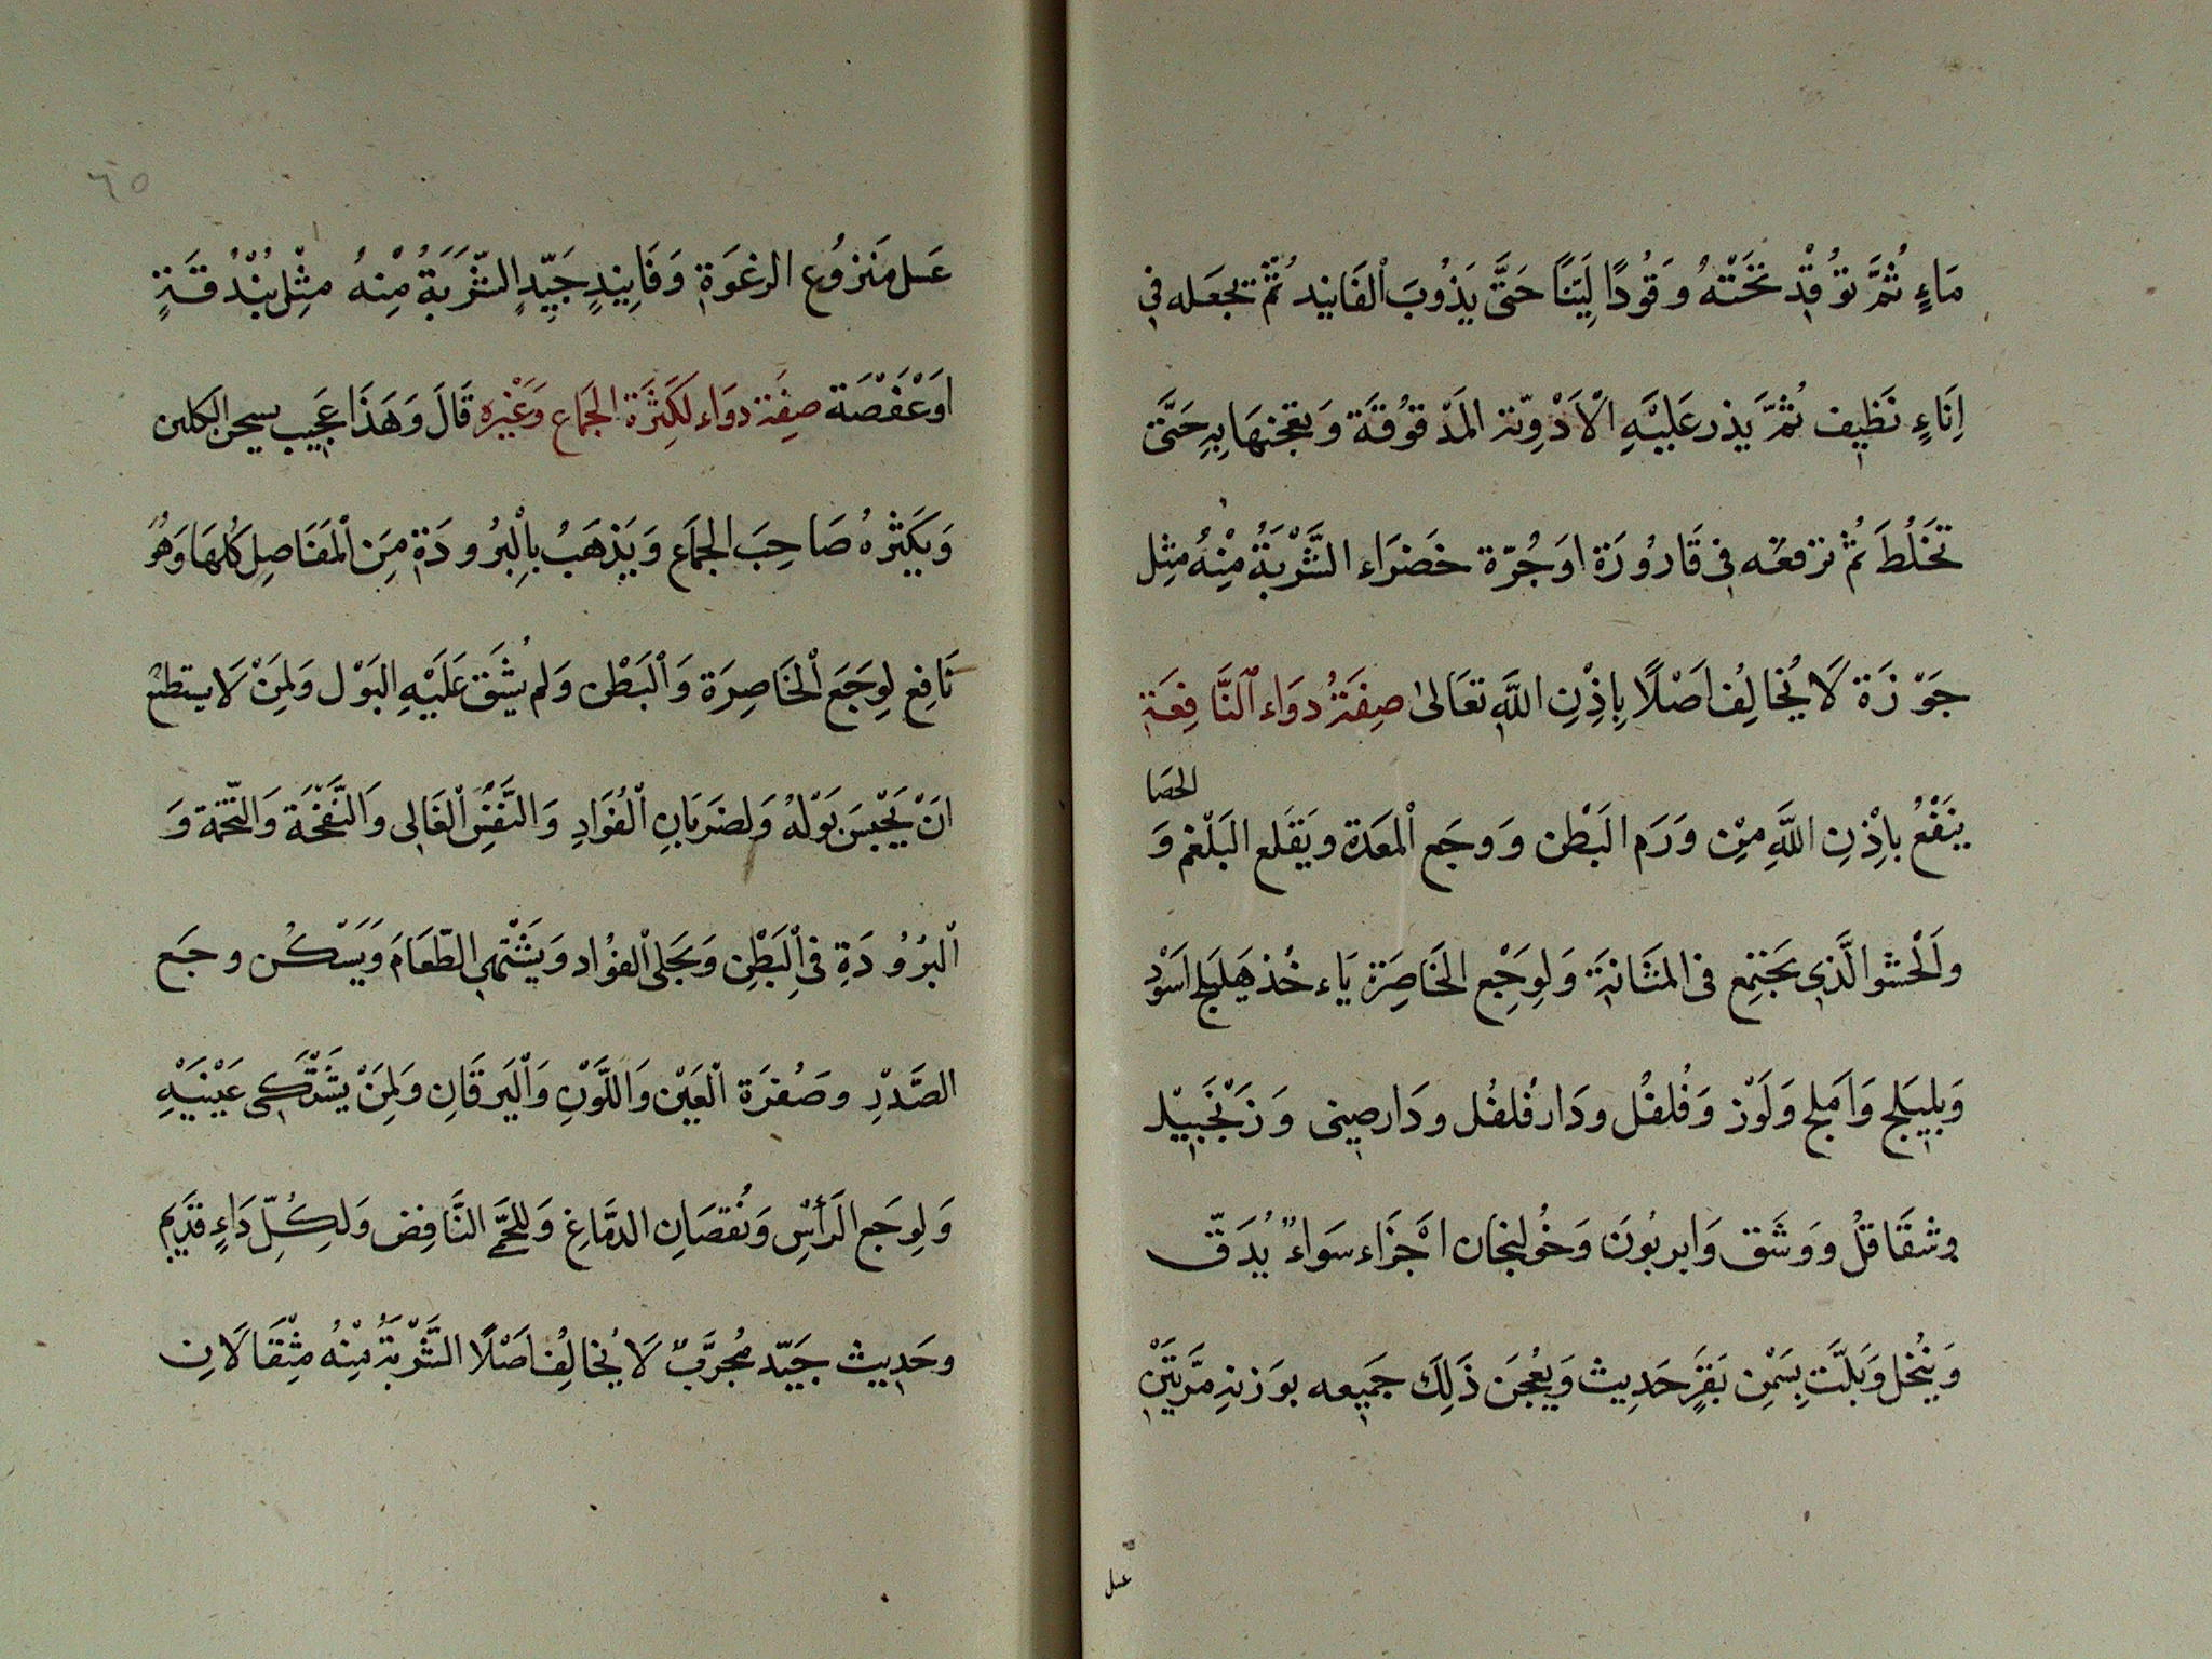 مَاءٍ ثُمَّ تُوْقِدْ تَحْتَهُ وَقُودًا لَيِّنًا حَتَّى يَذُوبَ اْلفَانِيد ثُمَّ تجعَله فِي
اِنَاءٍ نَظِيف ثُمَّ يَذر عَلَيْهِ الْاَدْوِيَة المَدْقُوقَة وَتعجنهَا بِهِ حَتَّى
تَخْلُطَ ثُمّ ترفعُه فِى قَارُورَة اوَجُرّة خَضرَاء الشَّرْبَةُ مِنْهُ مثِل
جَوْزَة لَا يُخَالِفُ اصْلًا بِاِذْنِ اللَّهِ تعَالىٰ صِفَةُ دوَاء النَّافِعَة
الحصَا
ينَفْعُ بِاِذْنِ اللَّهِ مِنْ وَرَم البَطْن وَوجَع اْلمَعدَة ويَقلَع البَلْغم وَ
واَلْحشو الَّذِي يَجْتَمِع فى المثَانَة وَلِوَجْع الخَاصِرَة يَاءخُذ هَلِيلج اسَوْد
وَبلِيلَج وَاَملج وَلَوْز وَفُلفُل ودَار فُلفُل ودَارصِينى وَزَنْجَبِيْل
وشقَاقلُ وَوَشَق وَابربُونَ وَخُولنجان اَجْزَاء سَواءً يُدَقّ
وَيُنْخل وَبَلَّت بِسَمْن بَقَرٍ حَدِيث وَيعْجنَ ذَلِكَ جَمِيعه بوَزنهِ مَرَّتَيْنِ
عسل
٦٥
عَسل مَنزوُع الرغوَة وَفَانِيدٍ جَيّدٍ الشّرَبَةُ مِنْهُ مثْل بُنْدُقَةٍ
اوَعَفْصَة صِفَة دوَاء لكَثرَة الجمَاع وَغَيْرِه قَالَ وَهَذَا عَجِيب يسحن الكلىن
وَيكَثرهُ صَاحِبَ الجمَاع وَيَذهَبُ بِاْلبُرودَة مِنَ اْلمَفَاصِل كُلهَا وَهُوَ
نَافِع لِوَجَع اْلخَاصِرَة وَاْلبَطْن وَلم يُشَق عَلَيْهِ البَوْل وَلِمَنْ لَا يستطع
انْ يَحْبسَ بَوْلَهُ وَلضرَبَانِ اْلفُوَادِ وَالنَّفَس اْلعَالى وَالنَّفْخَة وَالتّخمَة وَ
اْلبرُودَةِ فىِ اْلبَطْنِ وَيجَلى اْلفوُاد وَيَشْتَهى الطّعَامَ وَيَسْكُن وجَع
الصَّدْرِ وصَفرَة اْلعَيْن وَاللَّوْنِ وَاْليَرقَانِ وَلِمَنْ يشَتْكِى عَيْنَيْهِ
وَلِوجَع الَرأسْ وَنُقصَانِ الدمَّاغِ وَللحمَّى النَّافِض وَلِكُلّ دَاءٍ قدَيم
وحَدِيث جَيّد مُجرَّبٌ لَا يُخَالِفُ اصْلًا الشَّرْبَةُ مِنْهُ مِثْقَالَانِ